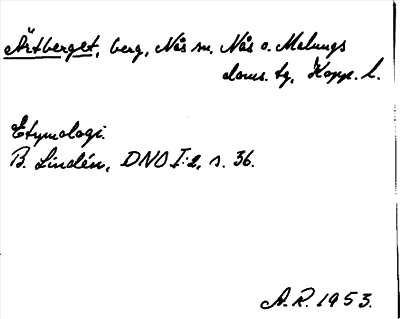 Ärtberget, berg, Nås sn, Nås o. Malungs
doms. tg, Kopp. l.
Etymologi.
B. Lindén, DNO I:2, s. 36.
A.R. 1953.